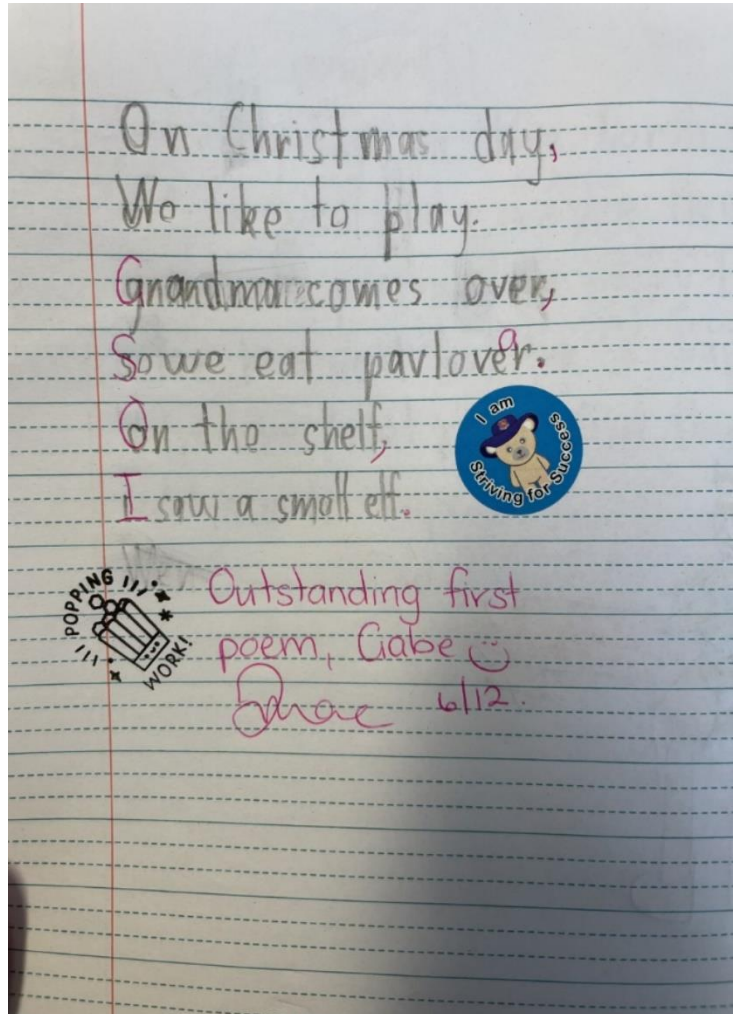 On Christmas day,
We like to play.
Grandma comes over,
So we eat pavlover.
On the shelf,
I saw a small elf.
I am
Striving for Success
POPPING
WORK!
Outstanding first
poem, Gabe
6/12.